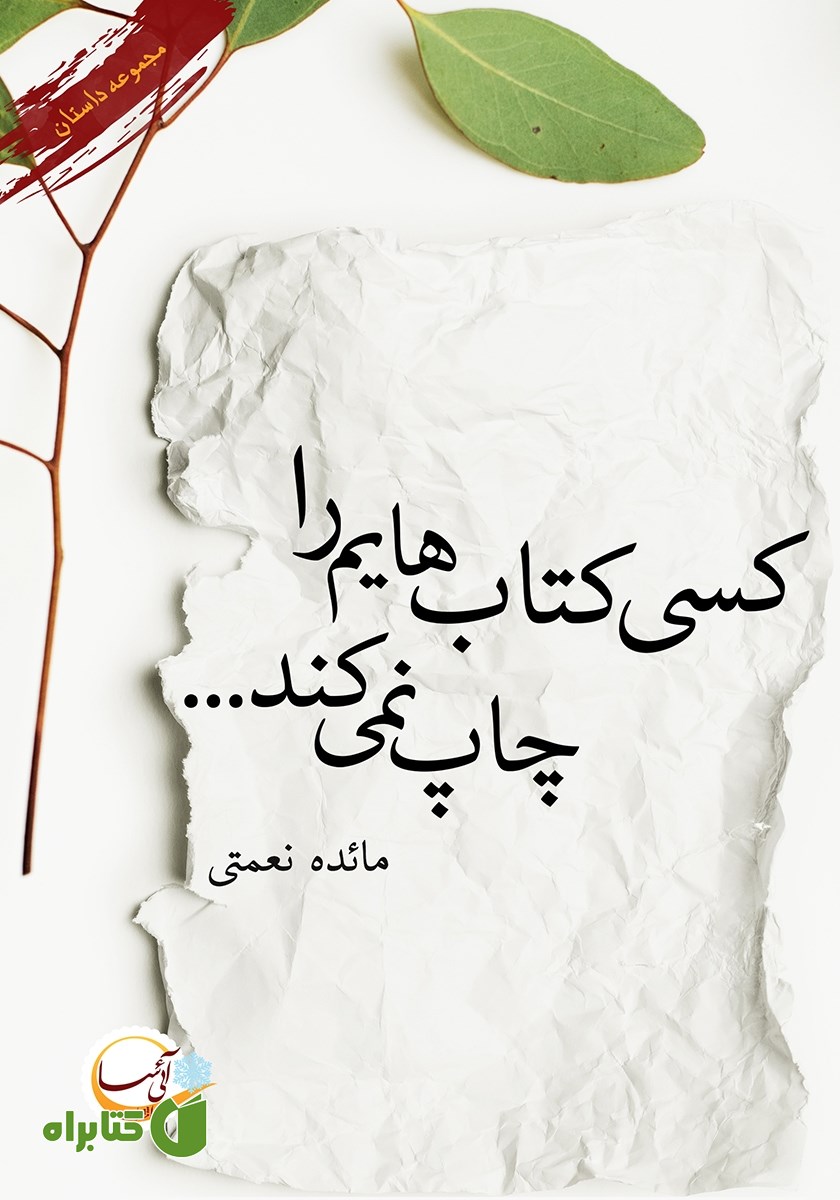 مجموعه داستان
کسی کتاب‌هایم را
چاپ نمی‌کند...
مائده نعمتی
کتابراه